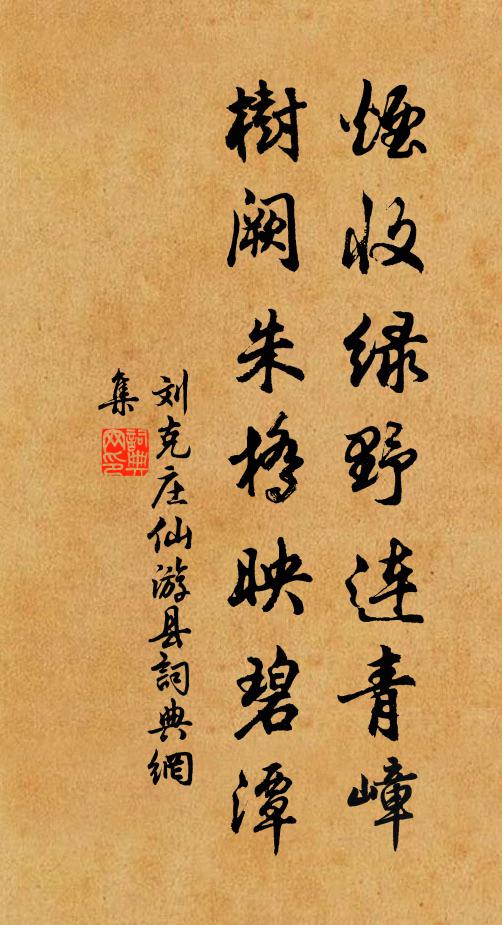 煙收绿野连青嶂
樹阙朱桥映碧潭
刘克庄仙游县詞典網
集
詞典网印